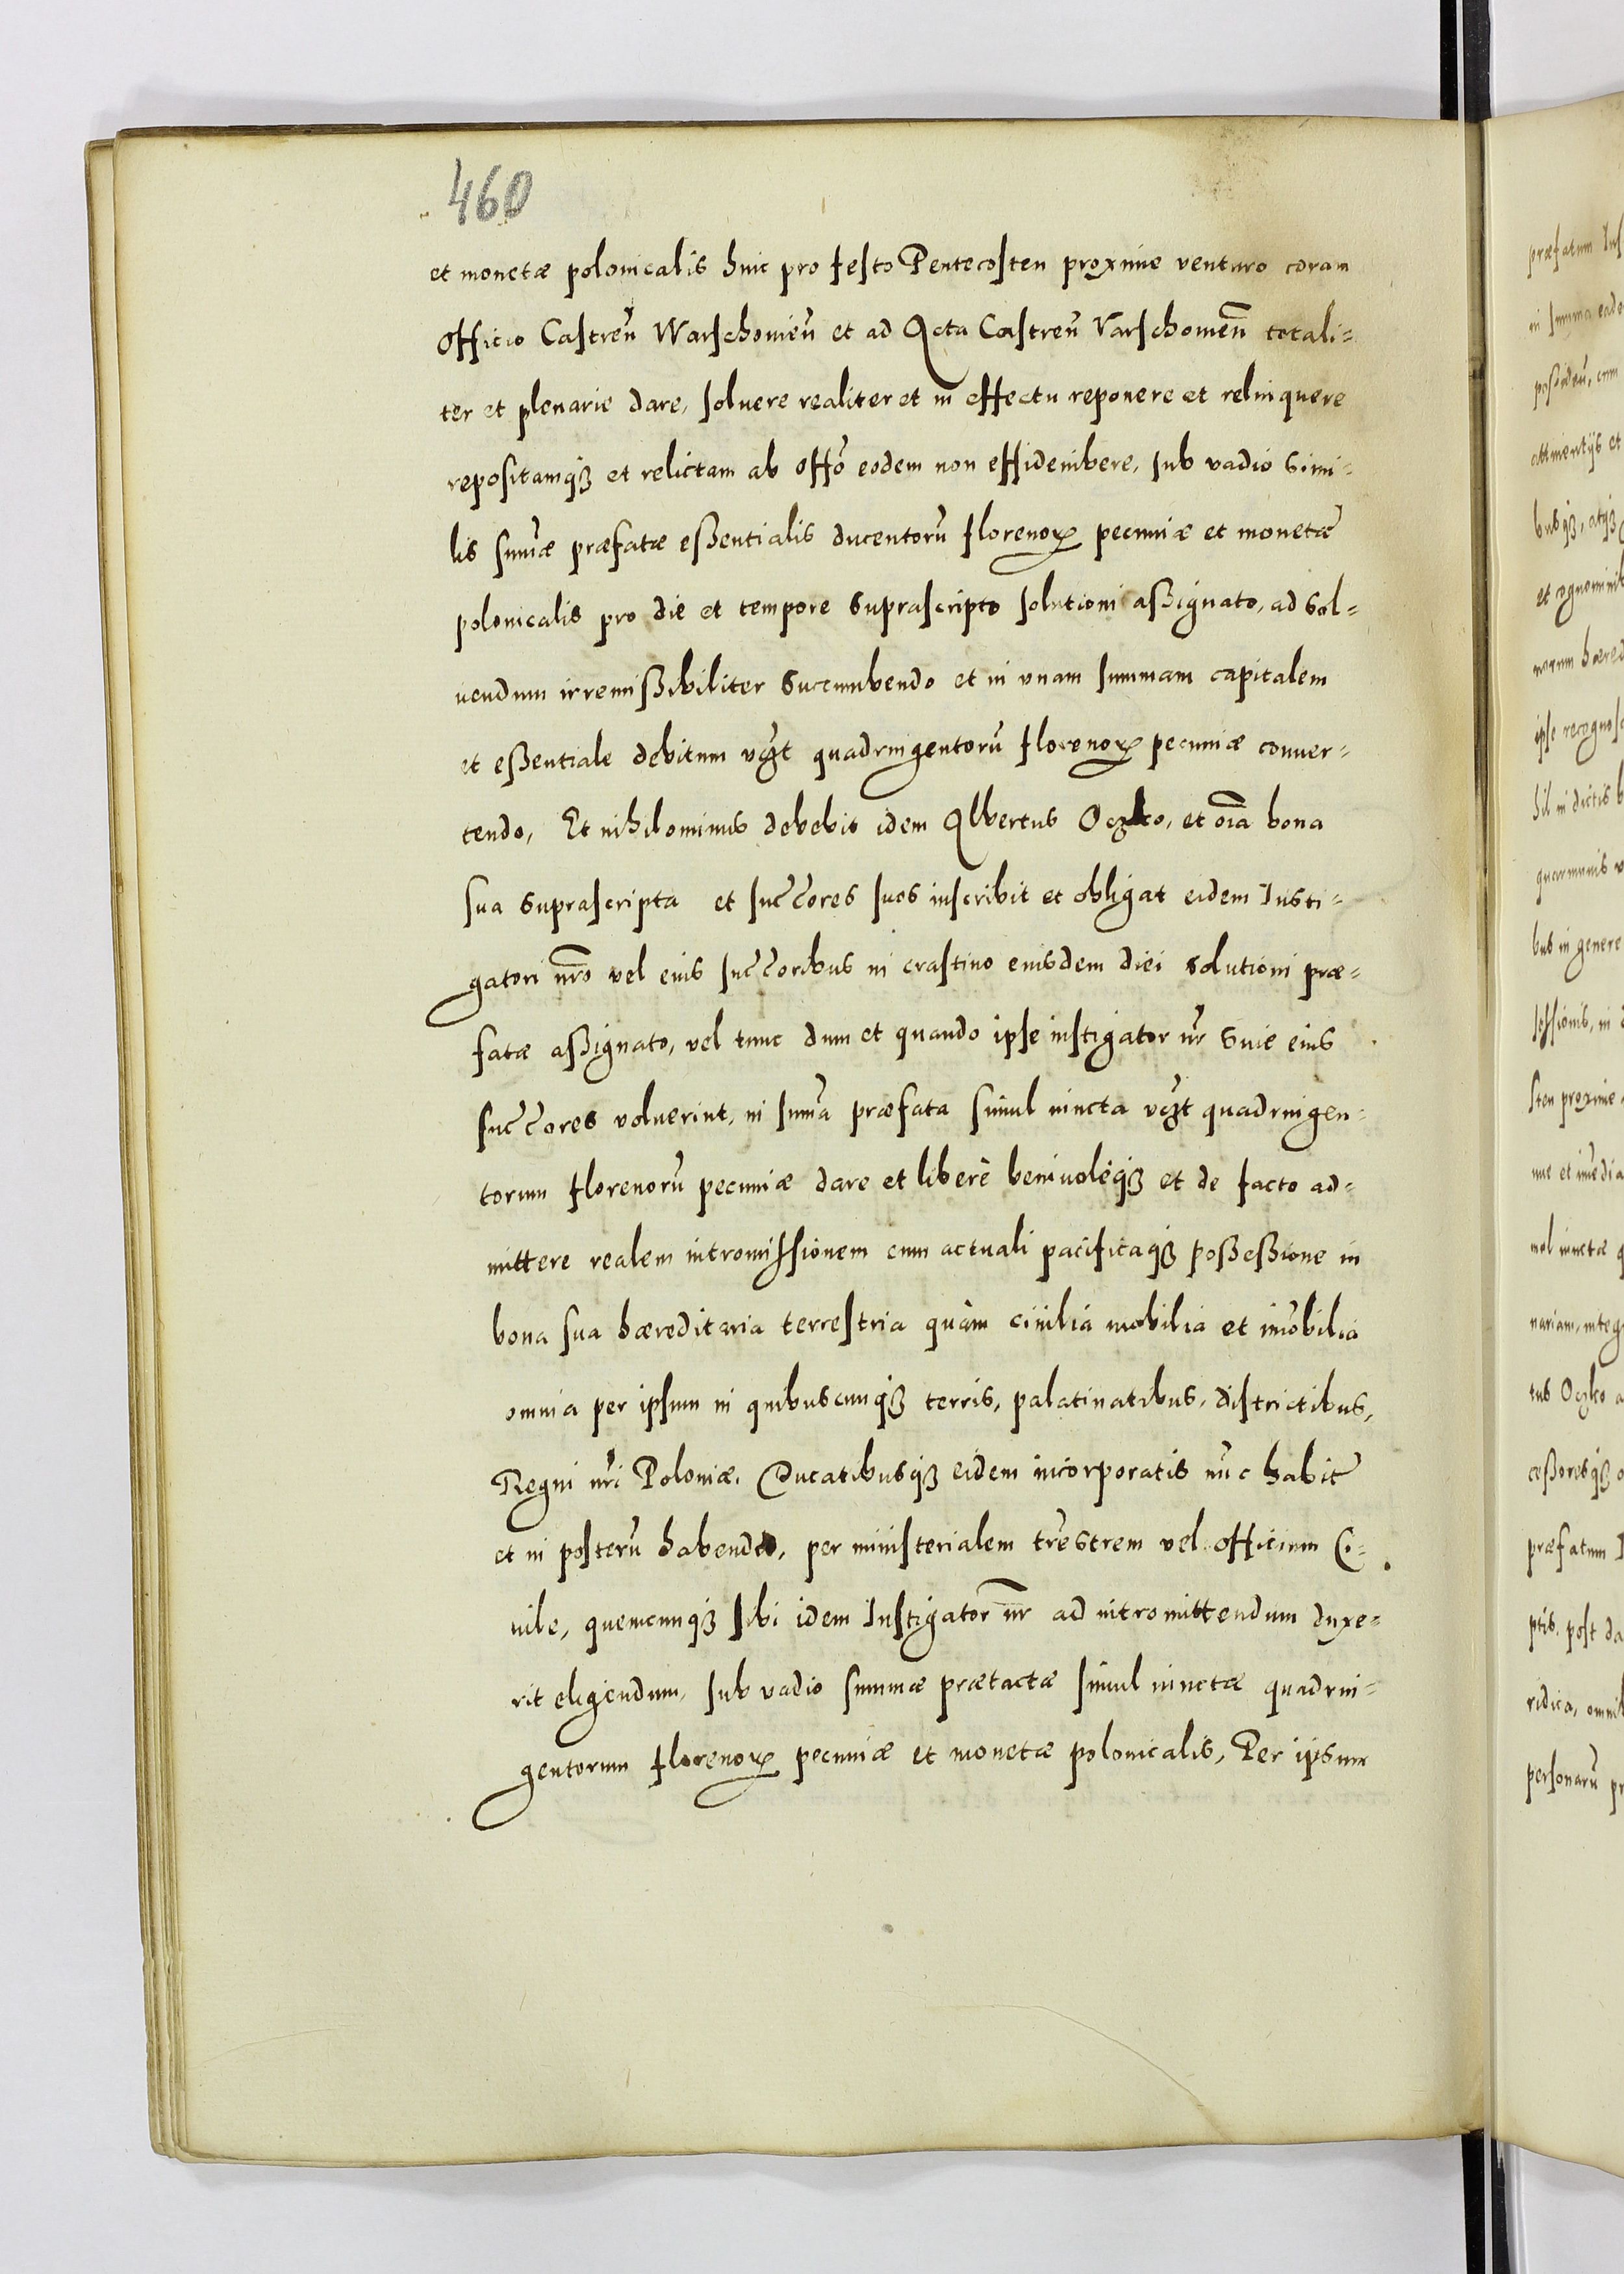 460
et monetæ polonicalis hinc pro festo Pentecosten proxime venturo coram
officio Castreñ Warschovieñ et ad Acta Castreñ Varschovieñ totali=
ter et plenarie dare, soluere realiter et in effectu reponere et relinquere
repositamqȝ et relictam ab offo͂ eodem non effidenibere, sub vadio simi=
lis sum̃æ præfatæ eßentialis ducentorũ florenoꝝ pecuniæ et monetæ
polonicalis pro die et tempore suprascripto solutioni aßignato, ad sol=
uendum irremißibiliter sucumbendo et in vnam summam capitalem
et eßentiale debitum vcȝt quadringentorũ florenoꝝ pecuniæ conuer=
tendo, Et nihilominus debebit idem Albertus Oczko, et oĩa bona
sua suprascripta et succ̃ores suos inscribit et obligat eidem Insti=
gatori nr̃o vel eius succ̃oribus in crastino eiusdem diei solutioni præ=
fatæ aßignato, vel tunc dum et quando ipse instigator nr̃ siue eius
succ̃ores voluerint, in sum̃a præfata simul iuncta vcȝt quadringen=
torum florenorũ pecuniæ dare et liberè beniuolèqȝ et de facto ad=
mittere realem intromissionem cum actuali pacificaqȝ poßeßione in
bona sua hæreditaria terrestria quàm ciuilia mobilia et im̃obilia
omnia per ipsum in quibuscunqȝ terris, palatinatibus, districtibus,
Regni nr̃i Poloniæ, Ducatibusqȝ eidem incorporatis nunc habit̃
et in posterũ habendo, per ministerialem trẽstrem vel officium Ci=
uile, quemcunqȝ sibi idem Instigator nr̃ ad intromittendum duxe=
rit eligendum, sub vadio summæ prætactæ simul iunctæ quadrin=
gentorum florenoꝝ pecuniæ et monetæ polonicalis, Per ipsum
præfatum
in summa
poßideñ, cum
attinentijs et
busqȝ, atqȝ
hæred
ipse
hil in dictis
bus in genere
in
sten proxime
nue et
mul iunctæ
nariam, integ
tus Oczko
ceßoresqȝ
præfatum
ptis, post da
ridica,
personarũ